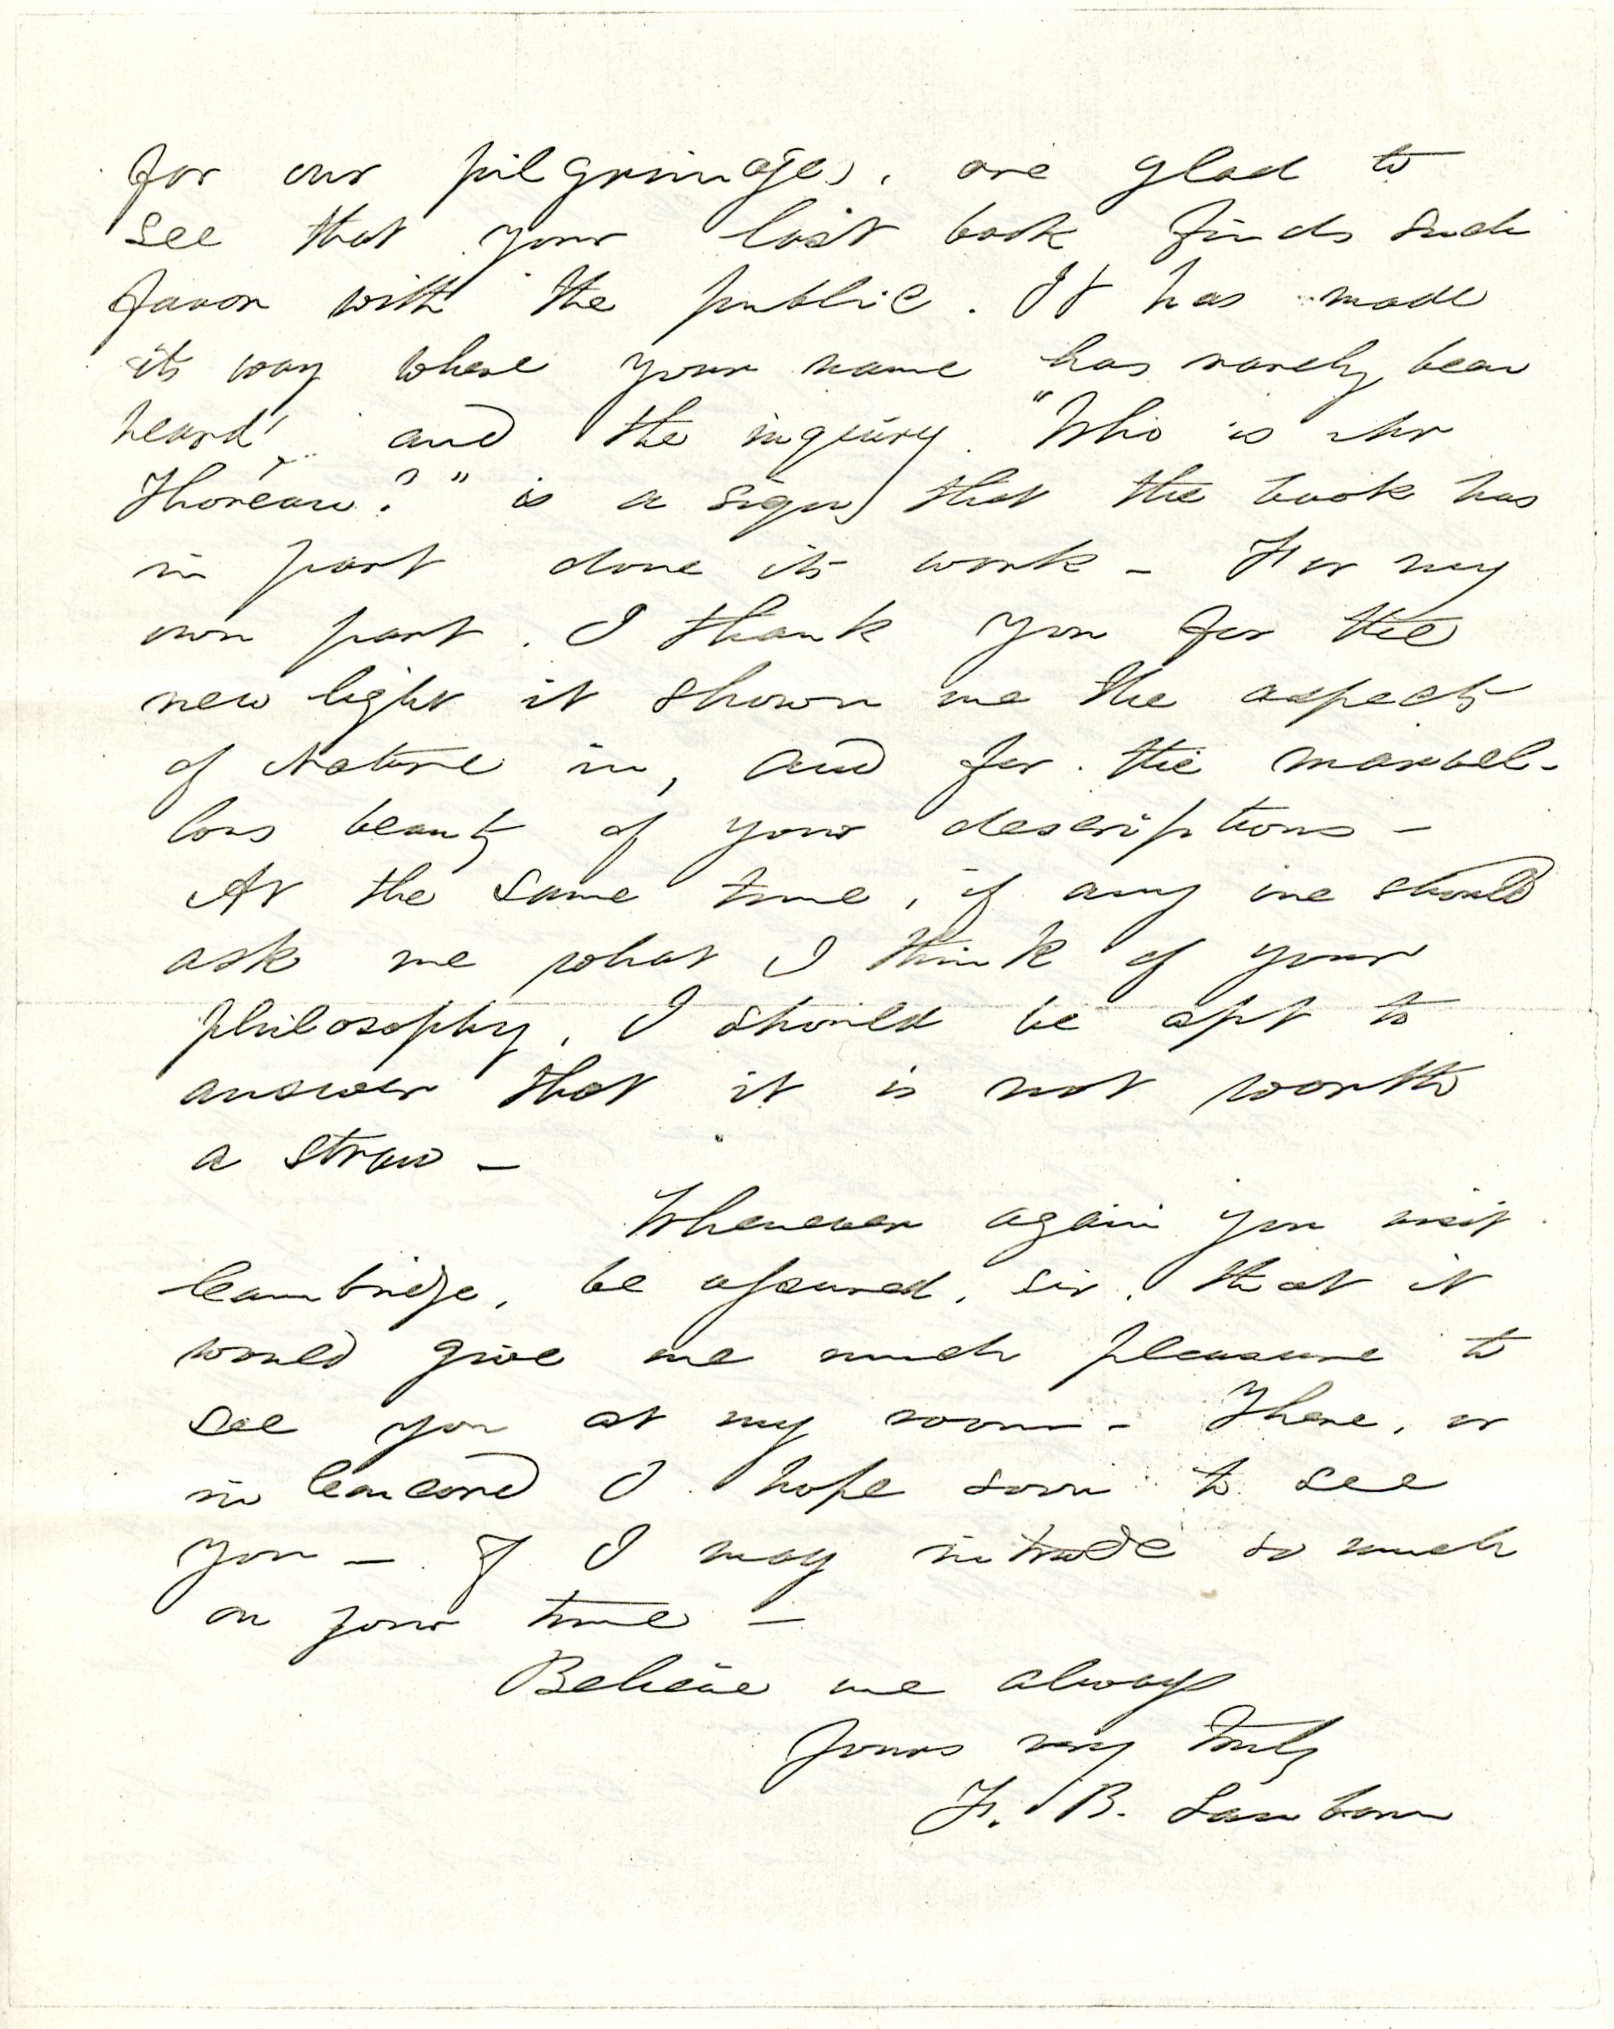 for our pilgrimages, are glad to
see that your last book finds such
favor with the public. It has made
its way where your name has rarely been
heard, and the inquiry "Who is Mr
Thoreau?" is a sign that the book has
in part done its work – For my
own part, I thank you for the
new light it shows me the aspects
of Nature in, and for the marvel-
lous beauty of your descriptions –
At the same time, if any one should
ask me what I think of your
philosophy, I should be apt to
answer that it is not worth
a straw –
Whenever again you visit
Cambridge, be assured, sir, that it
would give me much pleasure to
see you at my room – There, or
in Concord I hope soon to see
you – if I may intrude so much
on your time –
Believe me always
Yours very truly
F. B. Sanborn